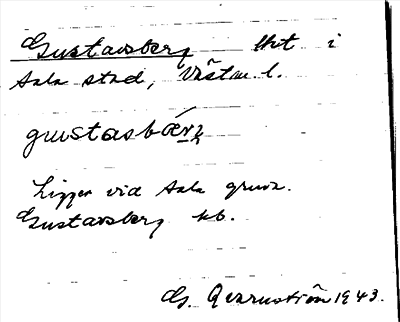 Gustavsberg lht i
Sala stad, Västm. l.
gustasbærj
Ligger vid Sala gruva.
Gustavsberg kb.
G. 1943.